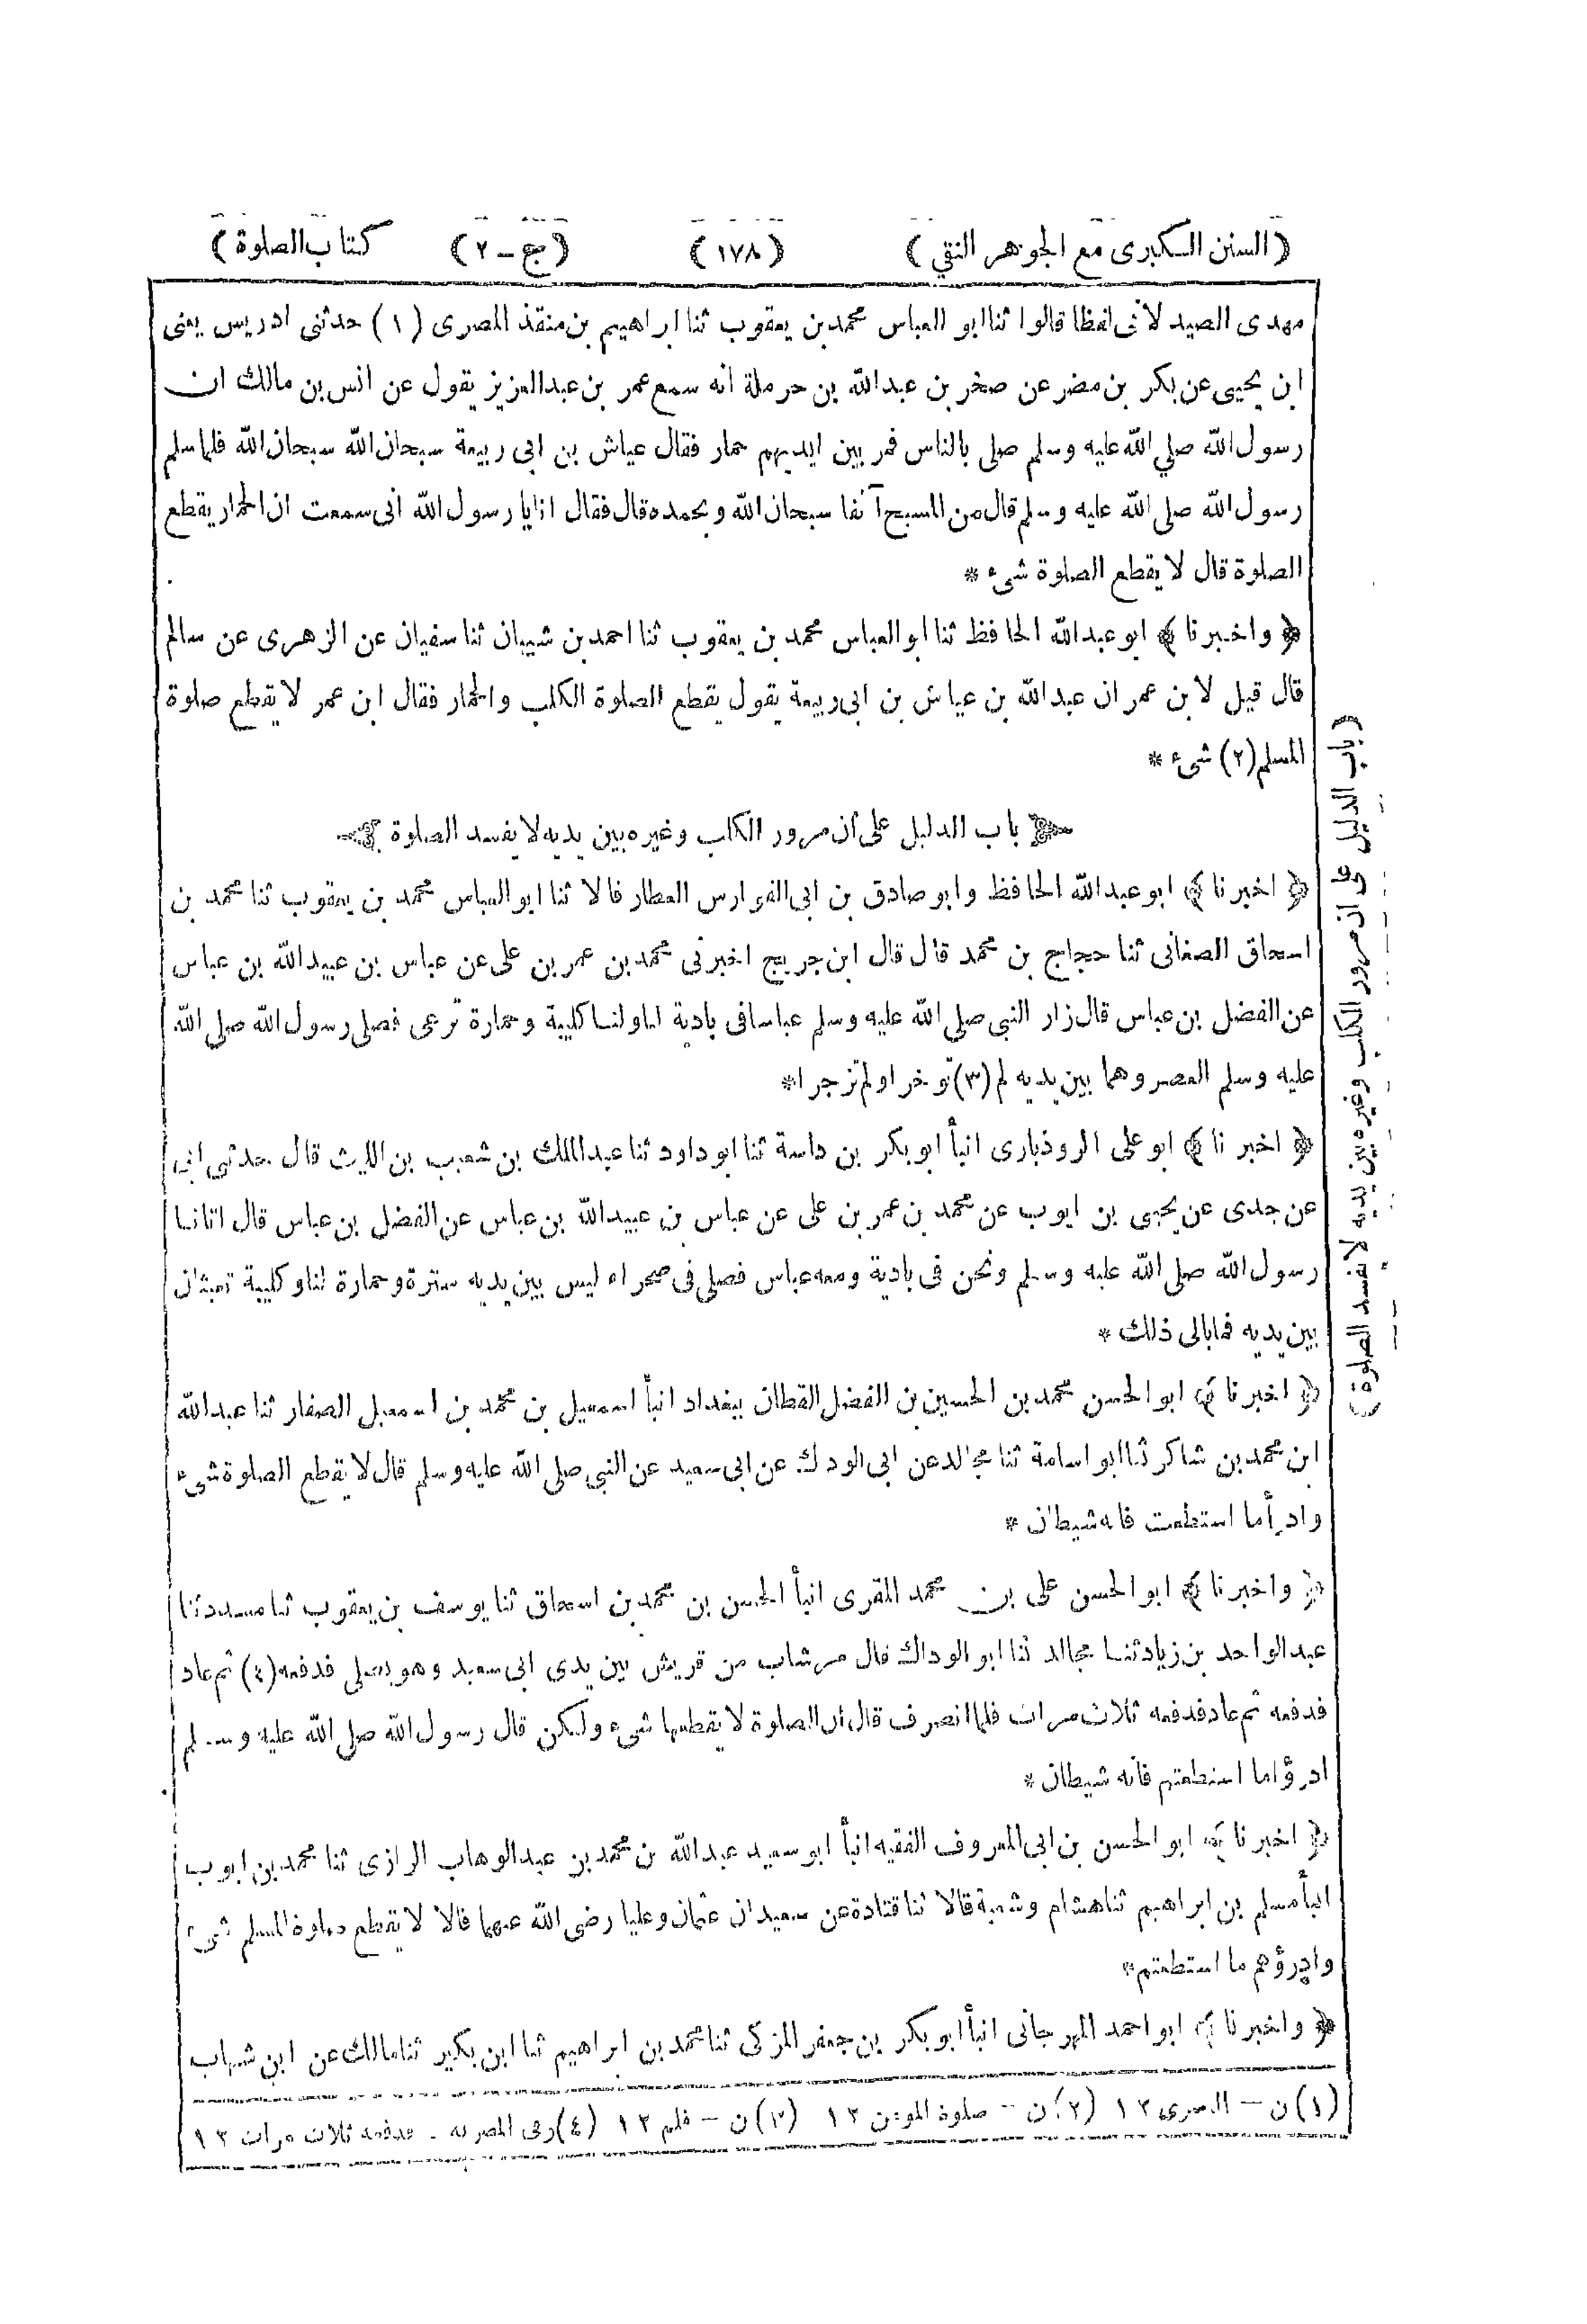 (السنن الكبرى مع الجوهر النقي) (١٧٨) (ج - ٢) كتاب الصلوة)
مهدى الصيدلانى لفظا قالوا ثنا ابو العباس محمد بن يعقوب ثنا ابراهيم بن منقذ المصرى (١) حدثنى ادريس يعنى
ابن يحيى عن بكر بن مضر عن صخر بن عبدالله بن حرملة انه سمع عمر بن عبدالعزيز يقول عن انس بن مالك ان
رسول الله صلي الله عليه وسلم صلى بالناس فمر بين ايديهم حمار فقال عياش بن ابى ربيعة سبحان الله سبحان الله فلما سلم
رسول الله صلى الله عليه وسلم قال من المسبح آنفا سبحان الله وبحمده قال فقال انا يا رسول الله انى سمعت ان الحمار يقطع
الصلوة قال لا يقطع الصلوة شىء *
﴿ واخبرنا ﴾ ابو عبدالله الحافظ ثنا ابو العباس محمد بن يعقوب ثنا احمد بن شيبان ثنا سفيان عن الزهرى عن سالم
قال قيل لا بن عمر ان عبدالله بن عياش بن ابى ربيعة يقول يقطع الصلوة الكلب والحمار فقال ابن عمر لا يقطع صلوة
المسلم (٢) شىء *
باب الدليل على ان مرور الكلب وغيره بين يديه لا يفسد الصلوة
﴿ اخبرنا ﴾ ابو عبدالله الحافظ وابو صادق بن ابى الفوارس العطار قالا ثنا ابو العباس محمد بن يعقوب ثنا محمد بن
اسحاق الصغانى ثنا حجاج بن محمد قال قال ابن جريج اخبرنى محمد بن عمر بن على عن عباس بن عبيدالله بن عباس
عن الفضل بن عباس قال زار النبى صلى الله عليه وسلم عباسا فى بادية لنا ولنا كليبة وحمارة ترعى فصلى رسول الله صلى الله
عليه وسلم العصر وهما بين يديه لم (٣) تؤخرا ولم تزجرا *
﴿ اخبرنا ﴾ ابو على الروذبارى انبأ ابو بكر بن داسة ثنا ابو داود ثنا عبدالملك بن شعيب بن الليث قال حدثنى ابى
عن جدى عن يحيى بن ايوب عن محمد بن عمر بن على عن عباس بن عبيدالله بن عباس عن الفضل بن عباس قال اتانا
رسول الله صلى الله عليه وسلم ونحن فى بادية ومعه عباس فصلى فى صحراء ليس بين يديه سترة وحمارة لنا وكليبة تعبثان
بين يديه فما بالى ذلك *
﴿ اخبرنا ﴾ ابو الحسن محمد بن الحسين بن الفضل القطان ببغداد انبأ اسمعيل بن محمد بن اسمعيل الصفار ثنا عبدالله
ابن محمد بن شاكر ثنا ابو اسامة ثنا مجالد عن ابى الودك عن ابى سعيد عن النبى صلى الله عليه وسلم قال لا يقطع الصلوة شىء
وادرأ ما استطعت فانه شيطان *
﴿ واخبرنا ﴾ ابو الحسن على بن محمد المقرى انبأ الحسن بن محمد بن اسحاق ثنا يوسف بن يعقوب ثنا مسدد ثنا
عبد الواحد بن زياد ثنا مجالد ثنا ابو الوداك قال مر شاب من قريش بين يدى ابى سعيد وهو يصلى فدفعه (٤) ثم عاد
فدفعه ثم عاد فدفعه ثلاث مرات فلما انصرف قال ان الصلوة لا يقطعها شىء ولكن قال رسول الله صلى الله عليه وسلم
ادرؤا ما استطعتم فانه شيطان *
﴿ اخبرنا ﴾ ابو الحسن بن ابى المعروف الفقيه انبأ ابو سعيد عبدالله بن محمد بن عبدالوهاب الرازى ثنا محمد بن ايوب
انبأ مسلم بن ابراهيم ثنا هشام وشعبة قالا ثنا قتادة عن سعيد ان عثمان وعليا رضى الله عنهما قالا لا يقطع صلوة المسلم شىء
وادرؤهم ما استطعتم *
﴿ واخبرنا ﴾ ابو احمد المهرجانى انبأ ابو بكر بن جعفر المزكى ثنا محمد بن ابراهيم ثنا ابن بكير ثنا مالك عن ابن شهاب
(١) ن - البصرى ١٢ (٢) ن - صلوة المؤمن ١٢ (٣) ن - فلم ١٢ (٤) وفى المصرية - فدفعه ثلاث مرات ١٢
(باب الدليل على ان مرور الكلب وغيره بين يديه لا يفسد الصلوة)